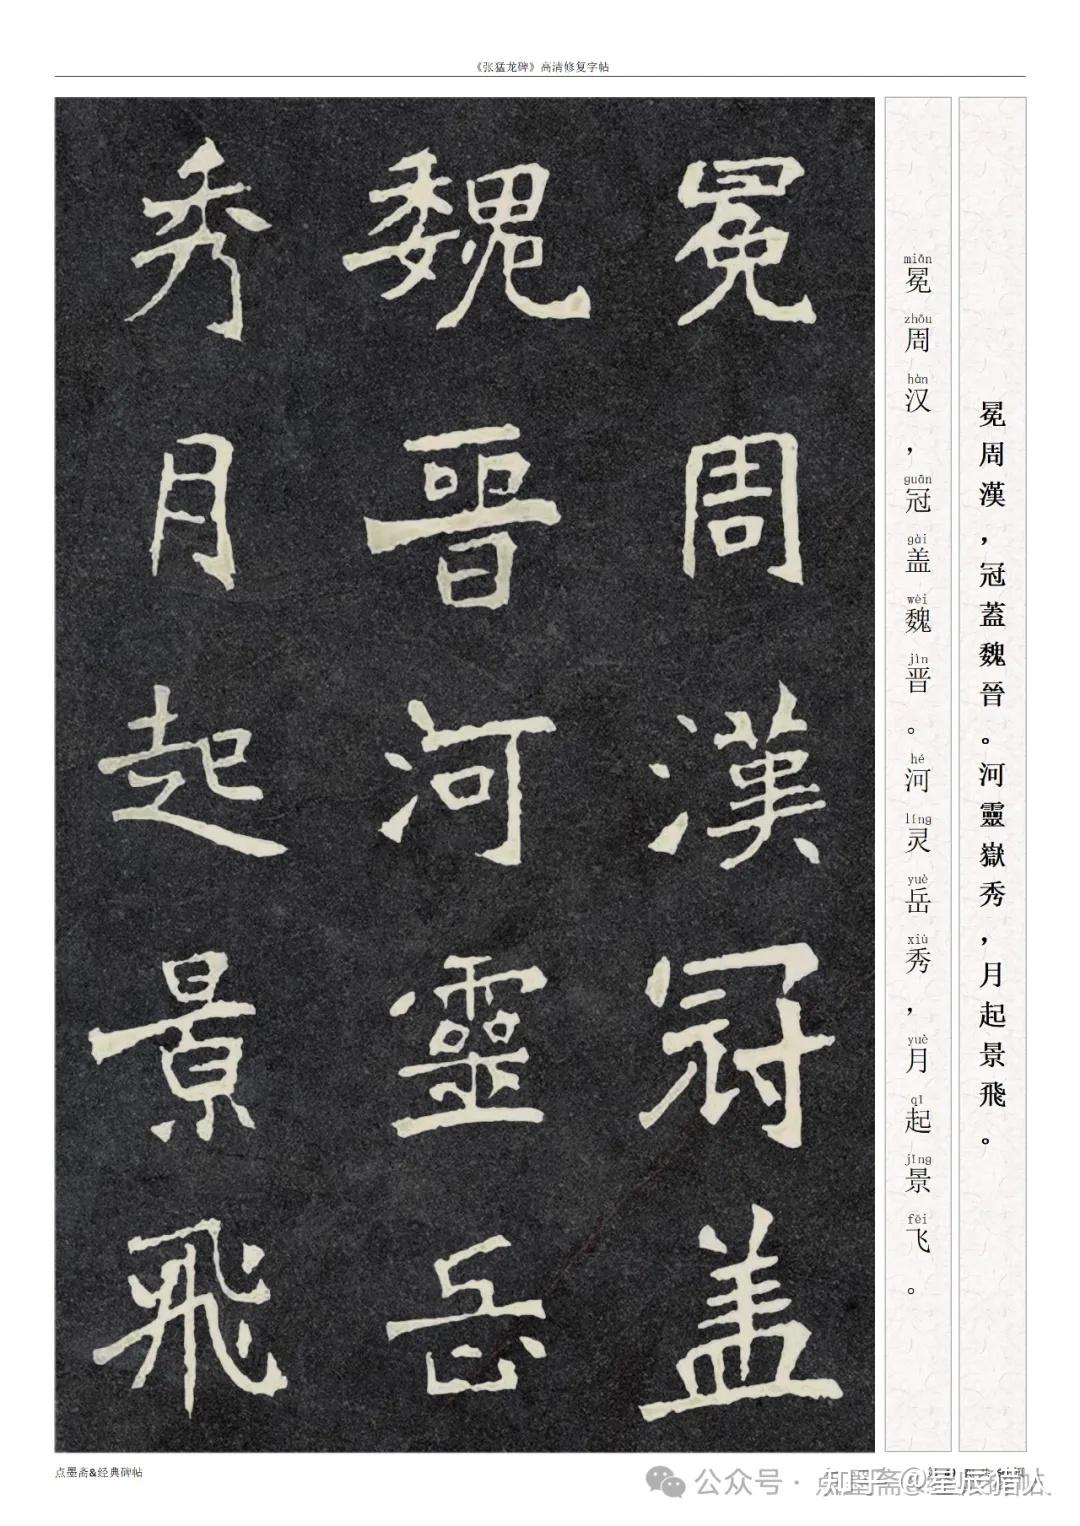 《张猛龙碑》高清修复字帖
冕周漢冠盖
魏晉河靈岳
秀月起景飛
miǎn zhōu hàn guān gài wèi jìn hé líng yuè xiù yuè qǐ jǐng fēi
冕周汉，冠盖魏晋。河灵岳秀，月起景飞。
冕周漢，冠蓋魏晉。河靈嶽秀，月起景飛。
点墨斋&经典碑帖
公众号·点墨斋
知乎 @星辰猎帖